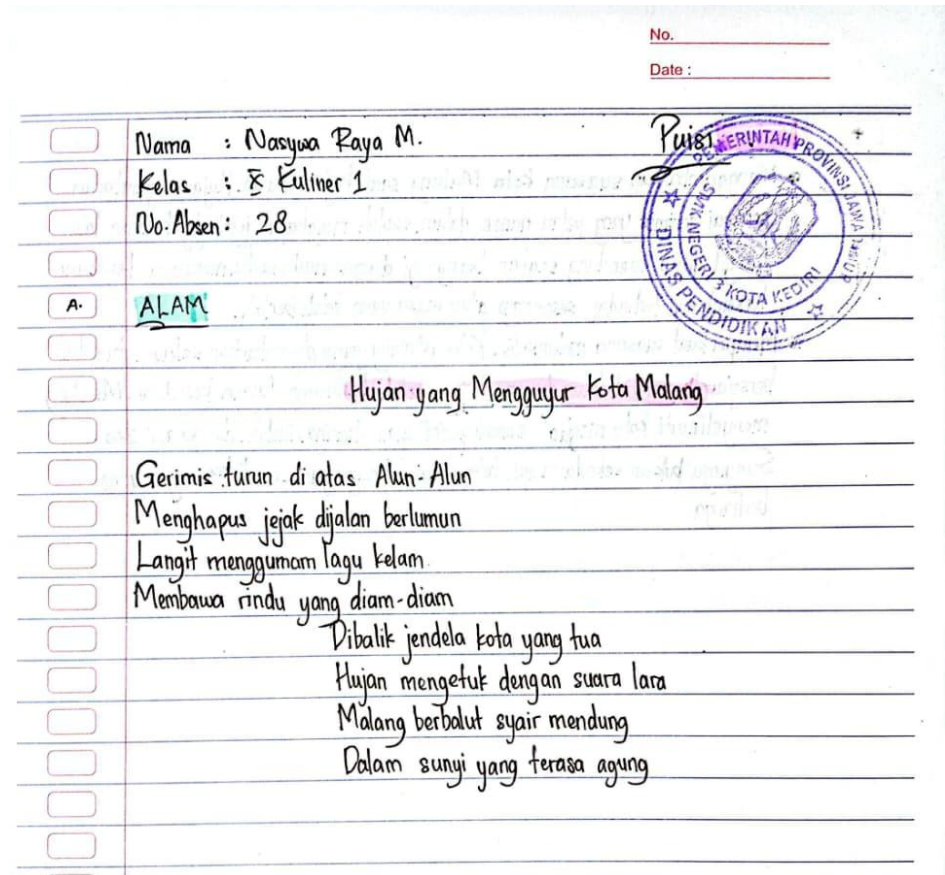 No.
Date :
Nama : Nasywa Raya M.
Puisi
Kelas : X Kuliner 1
No. Absen : 28
PEMERINTAH PROVINSI JAWA TIMUR
DINAS PENDIDIKAN
SMK NEGERI 3 KOTA KEDIRI
A. ALAM
Hujan yang Mengguyur Kota Malang
Gerimis turun di atas Alun-Alun
Menghapus jejak dijalan berlumun
Langit menggumam lagu kelam
Membawa rindu yang diam-diam
Dibalik jendela kota yang tua
Hujan mengetuk dengan suara lara
Malang berbalut syair mendung
Dalam sunyi yang terasa agung